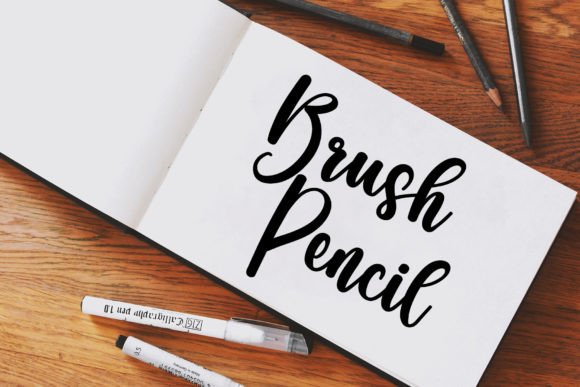 Brush
Pencil
ZIG Calligraphy pen 1.0